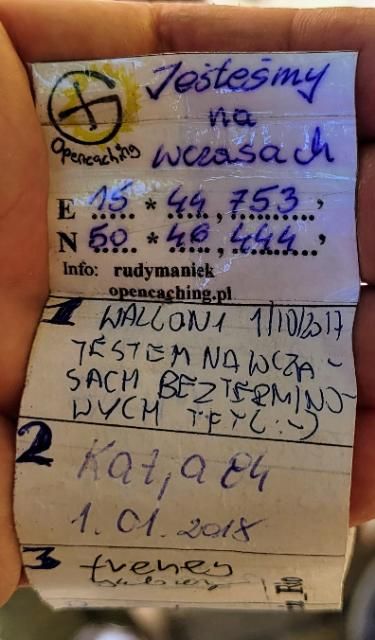 Opencaching
Jesteśmy
na
wczasach
E 15 * 44, 753'
N 50 * 46, 444'
Info: rudymaniek
opencaching.pl
1 WALLONI 1/10/2017
JESTEM NA WCZA-
SACH BEZTERMINO-
WYCH TFTC :-)
2
1.01.2018
3